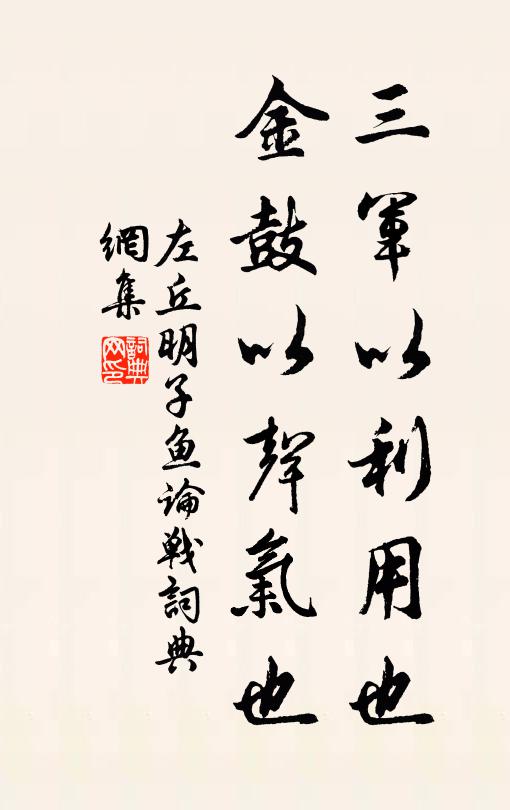 三軍以利用也
金鼓以聲氣也
左丘明子魚論戰詞典
網集
詞典
网印